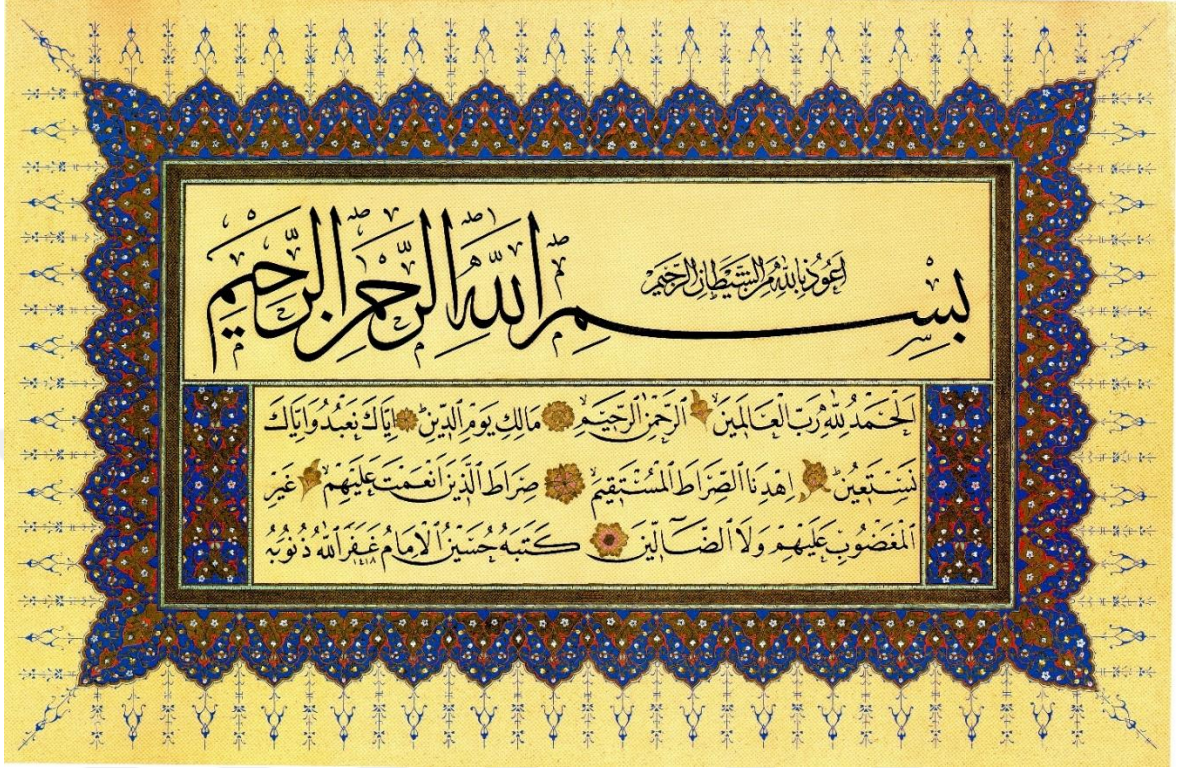 بِسْمِ اللّٰهِ الرَّحْمٰنِ الرَّحِيمِ
اَعُوذُ بِاللّٰهِ مِنَ الشَّيْطَانِ الرَّجِيمِ
اَلْحَمْدُ لِلّٰهِ رَبِّ الْعَالَمِينَ الرَّحْمٰنِ الرَّحِيمِ مَالِكِ يَوْمِ الدِّينِ اِيَّاكَ نَعْبُدُ وَاِيَّاكَ
نَسْتَعِينُ اِهْدِنَا الصِّرَاطَ الْمُسْتَقِيمَ صِرَاطَ الَّذِينَ اَنْعَمْتَ عَلَيْهِمْ غَيْرِ
الْمَغْضُوبِ عَلَيْهِمْ وَلَا الضَّالِّينَ كَتَبَهُ حُسَيْنُ الْاِمَامُ غَفَرَ اللّٰهُ ذُنُوبَهُ
١٤١٨